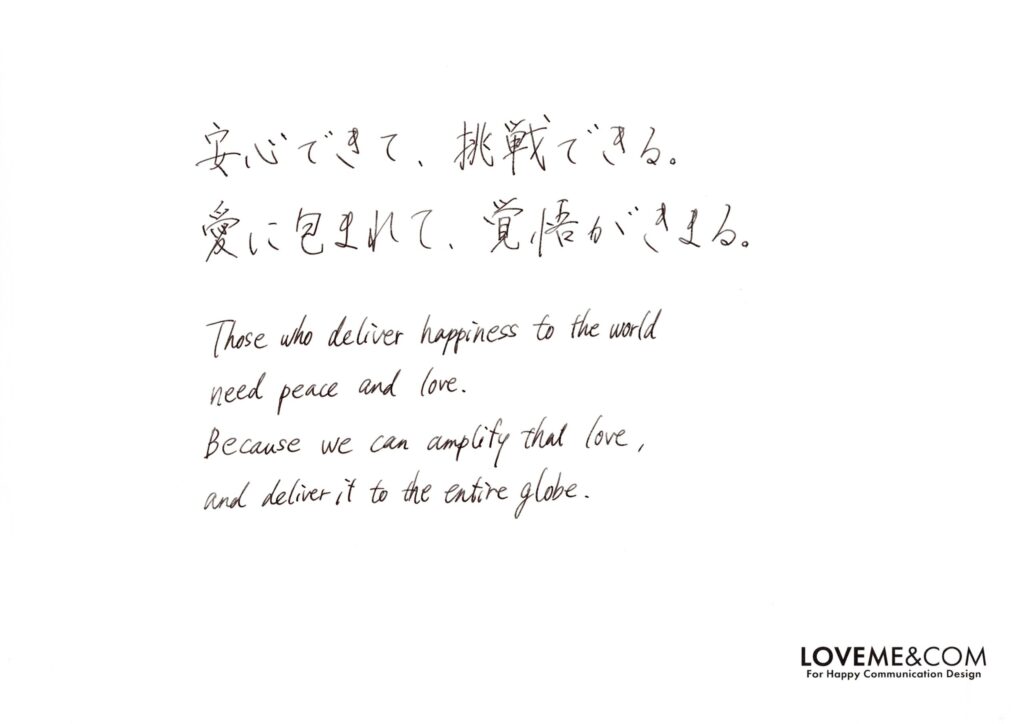 安心できて、挑戦できる。
愛に包まれて、覚悟がきまる。
Those who deliver happiness to the world
need peace and love.
Because we can amplify that love,
and deliver it to the entire globe.
LOVEME&COM
For Happy Communication Design